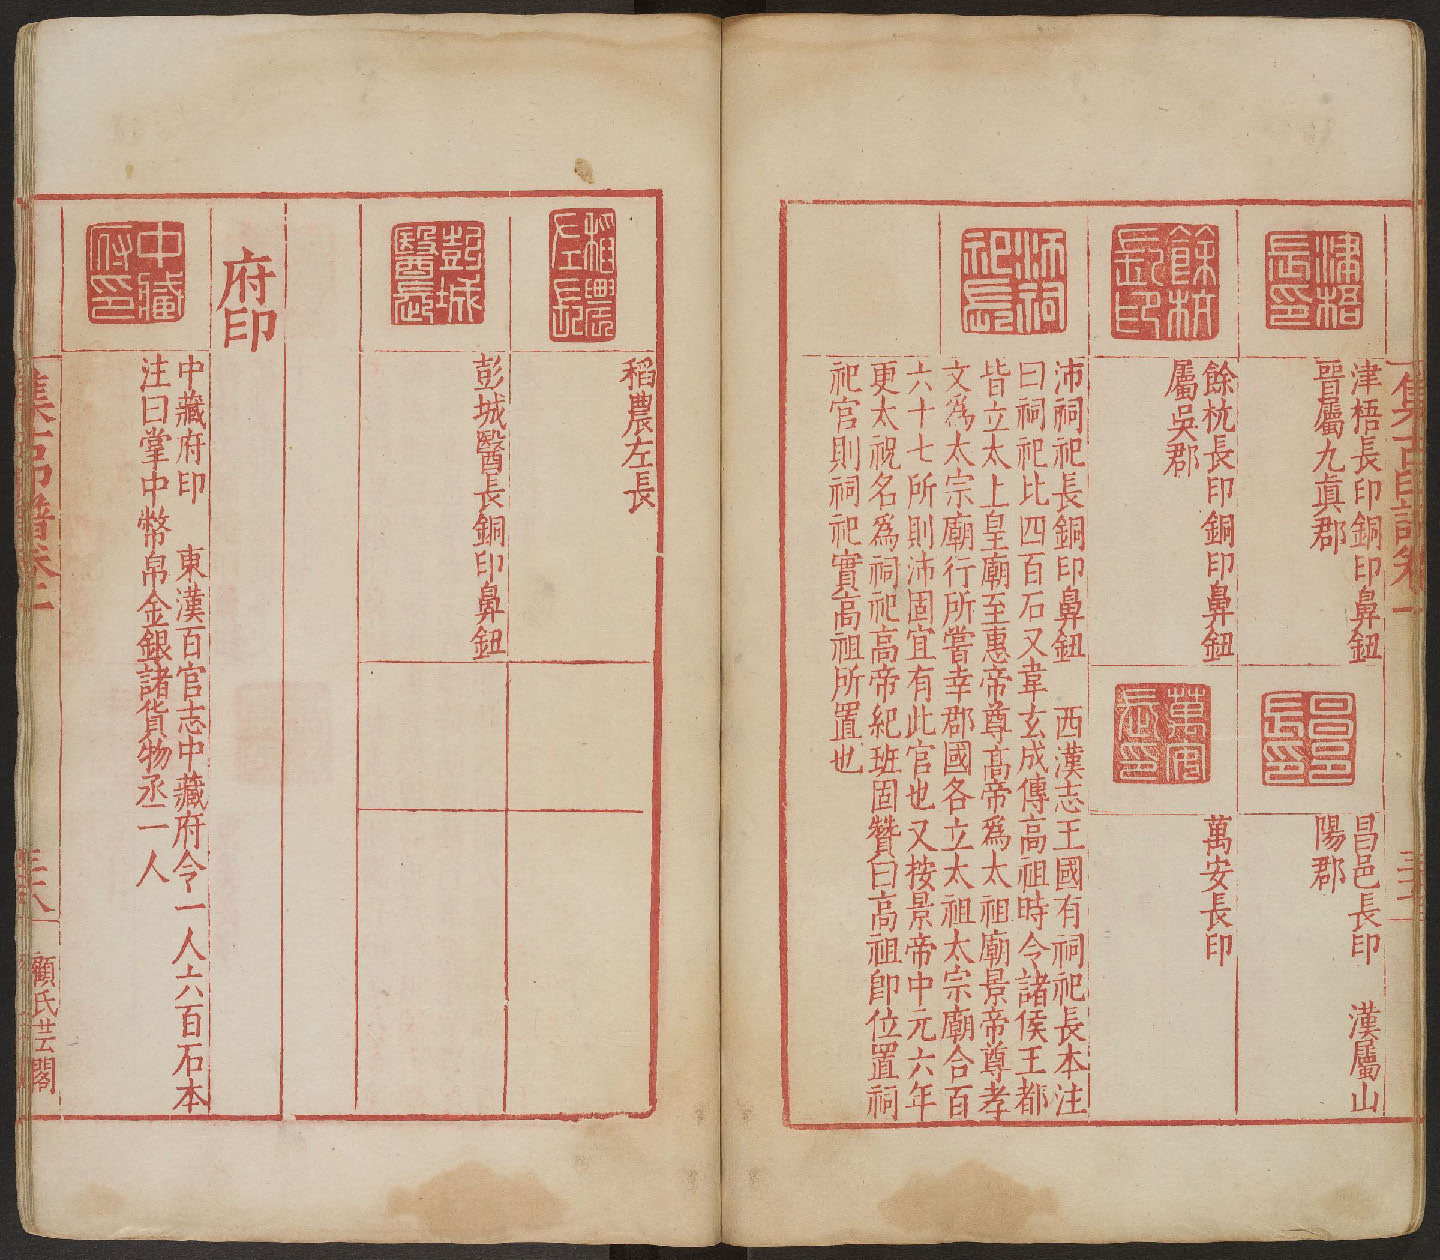 集古印譜卷二
津梧長印
津梧長印銅印鼻鈕
晉屬九真郡
昌邑長印
昌邑長印　漢屬山
陽郡
餘杭長印
餘杭長印銅印鼻鈕
屬吳郡
萬安長印
萬安長印
沛祠祀長
沛祠祀長銅印鼻鈕　西漢志王國有祠祀長本注
曰祠祀比四百石又韋玄成傳高祖時令諸侯王都
皆立太上皇廟至惠帝尊高帝爲太祖廟景帝尊孝
文爲太宗廟行所嘗幸郡國各立太祖太宗廟合百
六十七所則沛固宜有此官也又按景帝中元六年
更太祝名爲祠祀高帝紀班固贊曰高祖卽位置祠
祀官則祠祀實高祖所置也
稻農左長
稻農左長
彭城醫長
彭城醫長銅印鼻鈕
府印
中藏府印
中藏府印　東漢百官志中藏府令一人六百石本
注曰掌中幣帛金銀諸貨物丞一人
集古印譜卷二
三十八
顧氏芸閣